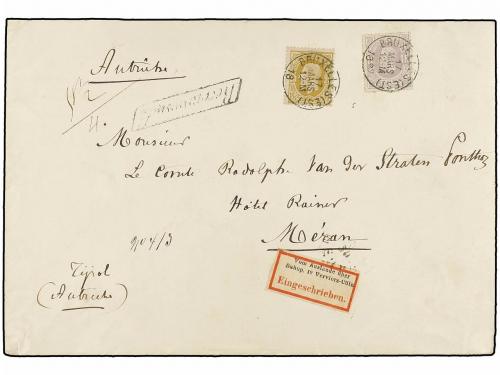 Autriche
BRUXELLES (EST)
MARS
BRUXELLES (EST)
MARS
Monsieur
Le Comte Rodolphe Van der Straten Ponthoz
Hôtel Rainer
Méran
Tyrol
(Autriche)
Vom Auslande über
Bahnp. 10 Verviers-Cöln
Eingeschrieben.